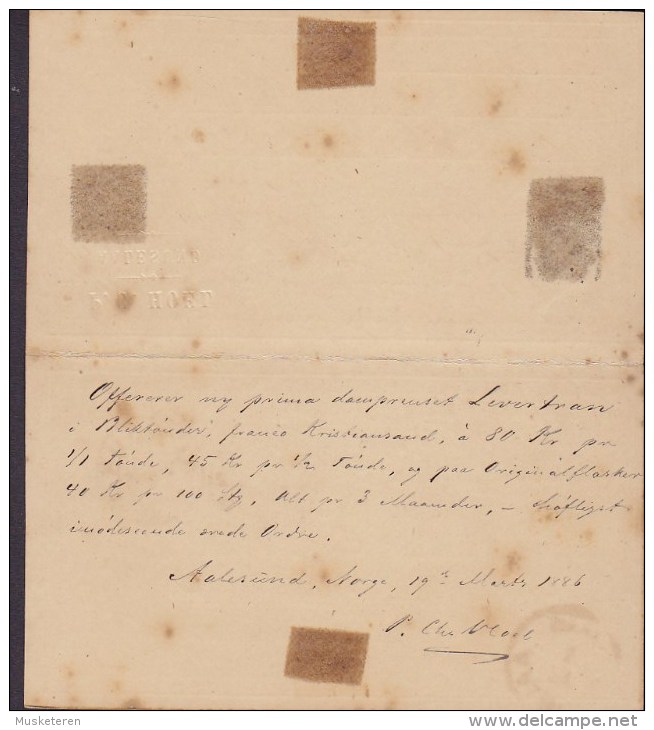 Offererer ny prima dampreuset Levertran
i Bliktönder, franco Kristiansand, à 80 Kr pr
1/1 Tönde, 45 Kr pr 1/2 Tönde, og paa Originalflasker
40 Kr pr 100 Stg, Alt pr 3 Maaneder, – höfligst
imödeseende ærede Ordre.
Aalesund, Norge, 19de Marts 1886
P. Chr
Musketeren
www.delcampe.net